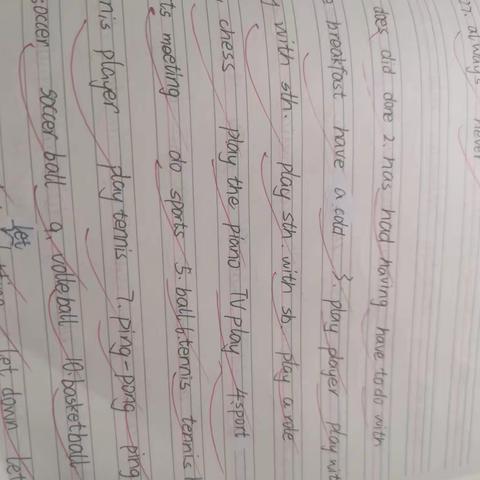 27. always never
does did done 2. has had having have to do with
breakfast have a cold 3. play player play wit
with sth. play sth. with sb play a role
chess play the piano TV play 4.sport
ts meeting do sports 5. ball 6. tennis tennis
nis player play tennis 7. ping-pong ping
soccer soccer ball 9. volleball 10. basketball
let
let down let